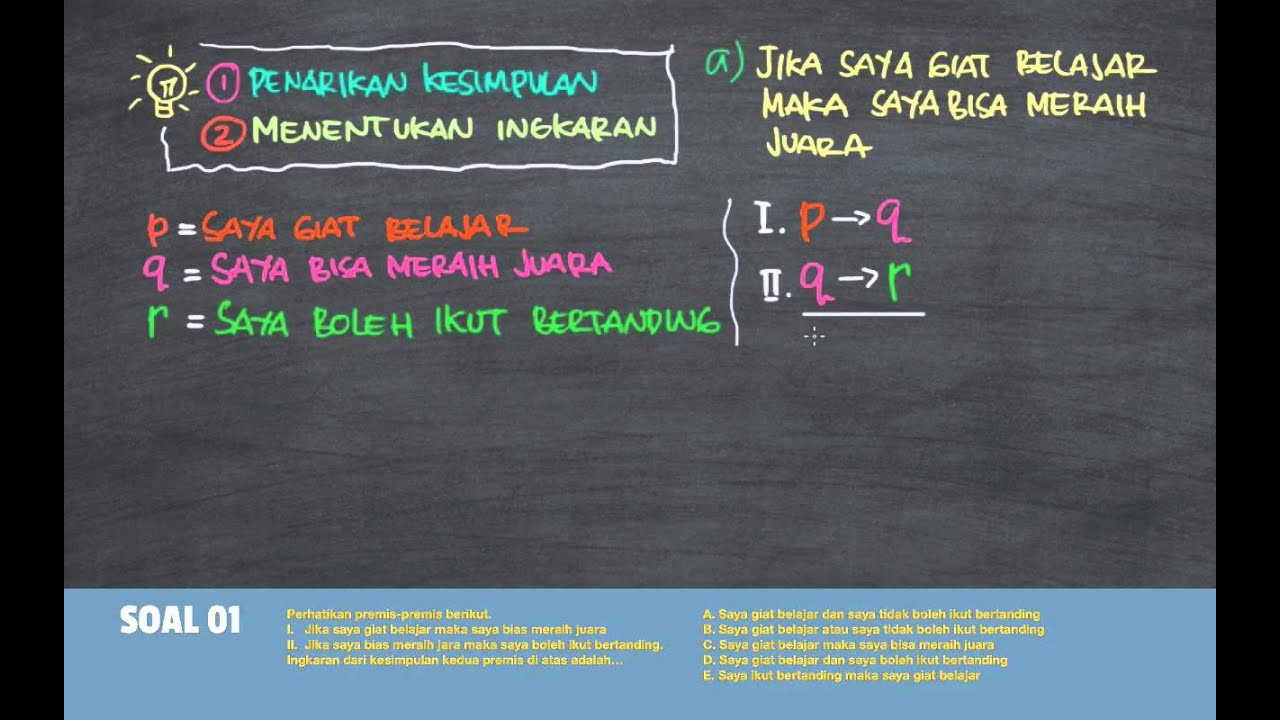 ① PENARIKAN KESIMPULAN
② MENENTUKAN INGKARAN
a) JIKA SAYA GIAT BELAJAR
MAKA SAYA BISA MERAIH
JUARA
p = SAYA GIAT BELAJAR
q = SAYA BISA MERAIH JUARA
r = SAYA BOLEH IKUT BERTANDING
I. p → q
II. q → r
SOAL 01
Perhatikan premis-premis berikut.
I. Jika saya giat belajar maka saya bias meraih juara
II. Jika saya bias meraih jara maka saya boleh ikut bertanding.
Ingkaran dari kesimpulan kedua premis di atas adalah...
A. Saya giat belajar dan saya tidak boleh ikut bertanding
B. Saya giat belajar atau saya tidak boleh ikut bertanding
C. Saya giat belajar maka saya bisa meraih juara
D. Saya giat belajar dan saya boleh ikut bertanding
E. Saya ikut bertanding maka saya giat belajar